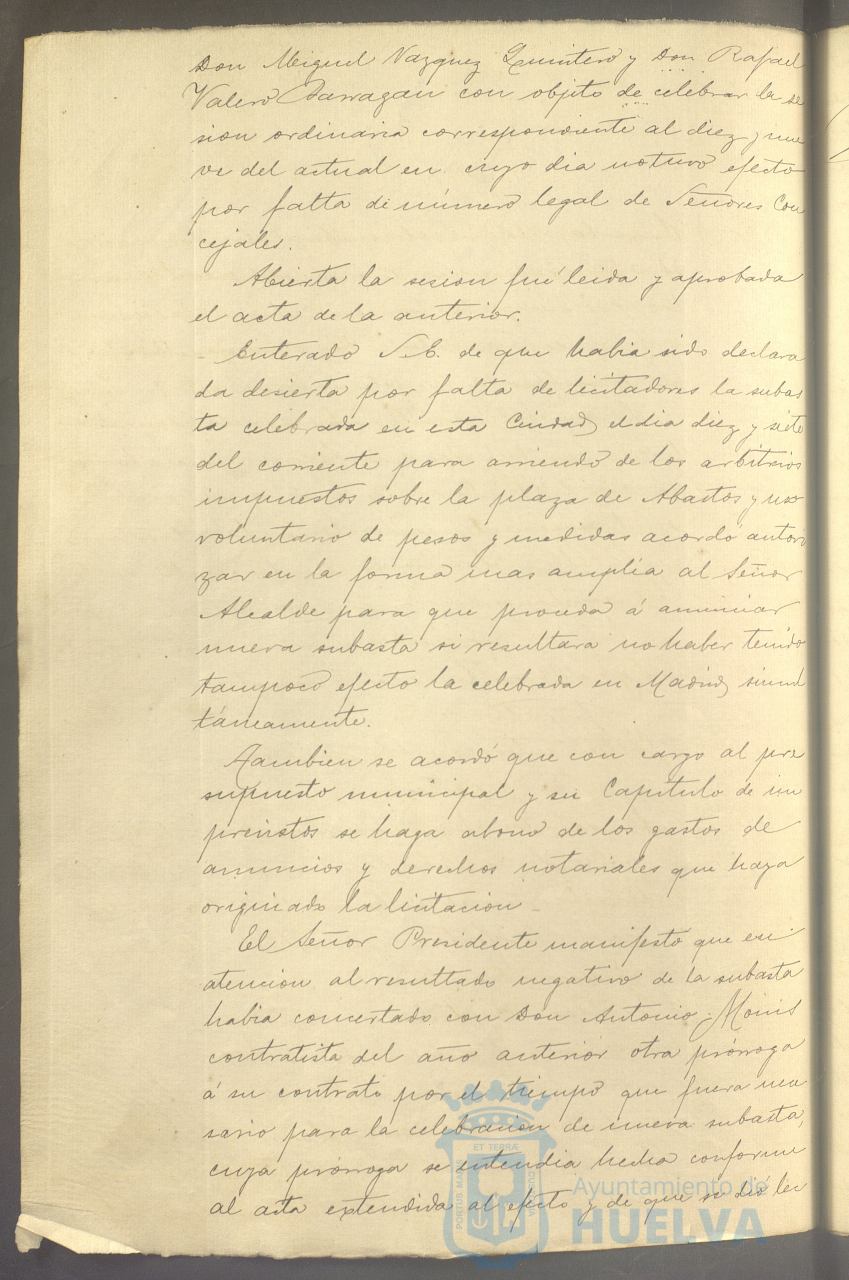 Don Miguel Vazquez Quintero y Don Rafael
Valero Barragan con objeto de celebrar la se
sion ordinaria correspondiente al diez y nue
ve del actual en cuyo dia no tuvo efecto
por falta de número legal de Señores Con
cejales.
Abierta la sesion fué leida y aprobada
el acta de la anterior.
Enterado S.E. de que habia sido declara
da desierta por falta de licitadores la subas
ta celebrada en esta Ciudad el dia diez y siete
del corriente para arriendo de los arbitrios
impuestos sobre la plaza de Abastos y uso
voluntario de pesos y medidas acordó autori
zar en la forma mas amplia al Señor
Alcalde para que proceda á anunciar
nueva subasta si resultara no haber tenido
tampoco efecto la celebrada en Madrid simul
táneamente.
Tambien se acordó que con cargo al pre
supuesto municipal y su Capitulo de im
previstos se haga abono de los gastos de
anuncios y derechos notariales que haya
originado la licitacion
El Señor Presidente manifestó que en
atencion al resultado negativo de la subasta
habia concertado con Don Antonio
contratista del año anterior otra prórroga
á su contrato por el tiempo que fuera nece
sario para la celebracion de nueva subasta,
cuya prórroga se entendia hecha conforme
al acta extendida al efecto y de que se dió lec
PORTUS MARIS ET TERRÆ CUSTODIA
Ayuntamiento de
HUELVA